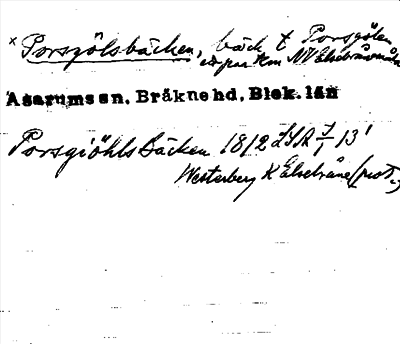 x Porsgölsbäcken, bäck t Porsgölen
ett par km NV Elsebråne
Asarums sn, Bräkne hd, Blek. län
Porsgiöhls Bäcken 1812 LSA 7/1 13'
Westerberg K Elsebråne (prot.)